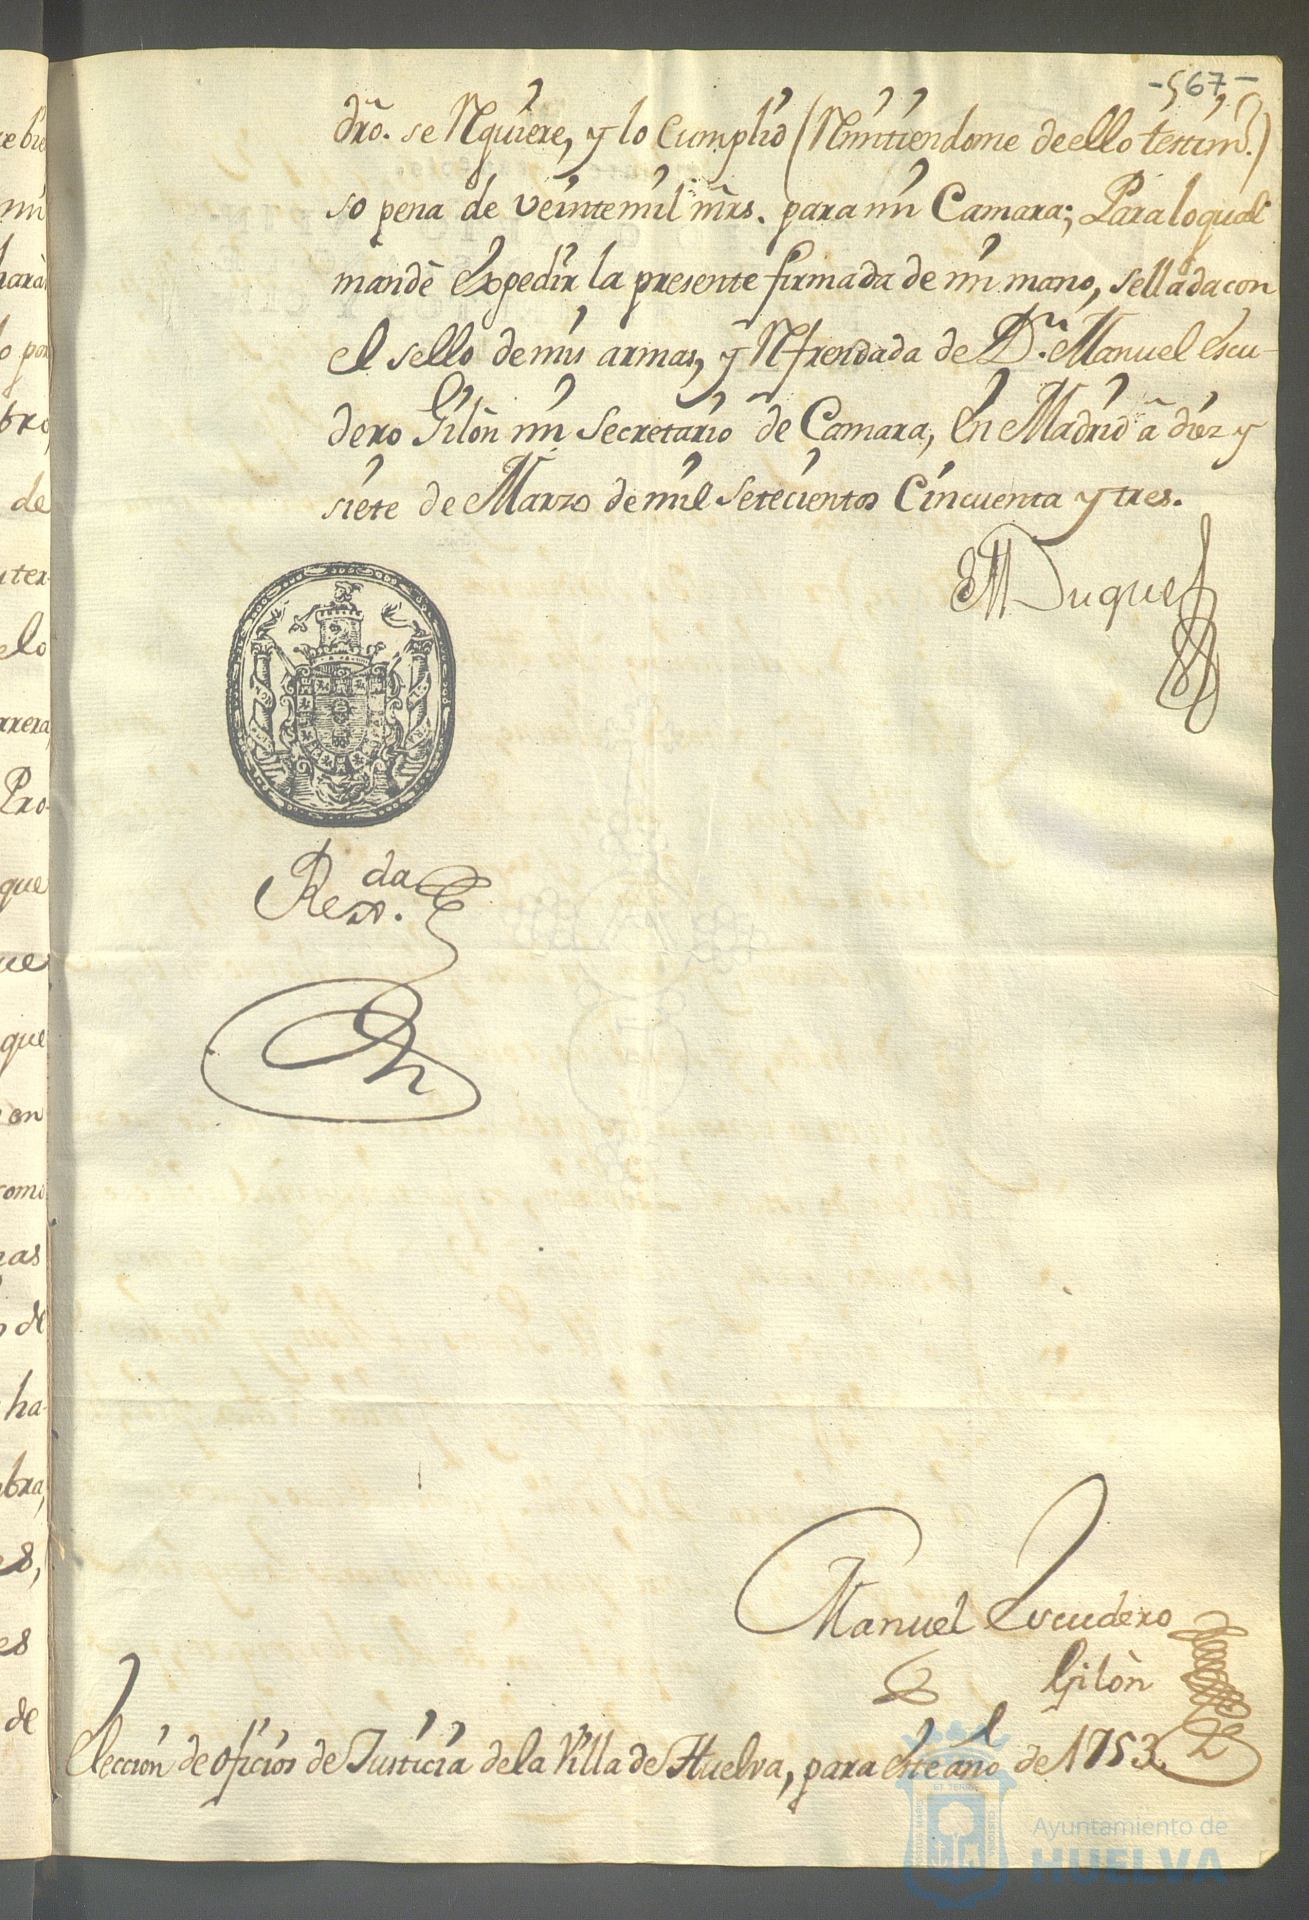 -567-
dro. se Rquiere, y lo cumplió (Rmitiendome de ello testimo.)
so pena de veinte mil mrs. para mi Camara; Para lo qual
mandè expedir la presente firmada de mi mano, sellada con
el sello de mis armas, y Rfrendada de Dn. Manuel Escu-
dero Gilòn mi Secretario de Camara, En Madrid à diez y
siete de Marzo de mil Setecientos Cinquenta y tres.
El Duque
Rexda.
Manuel Escudero
Gilòn
Elección de oficios de Justicia de la Villa de Huelva, para este año de 1753.
Ayuntamiento de
HUELVA